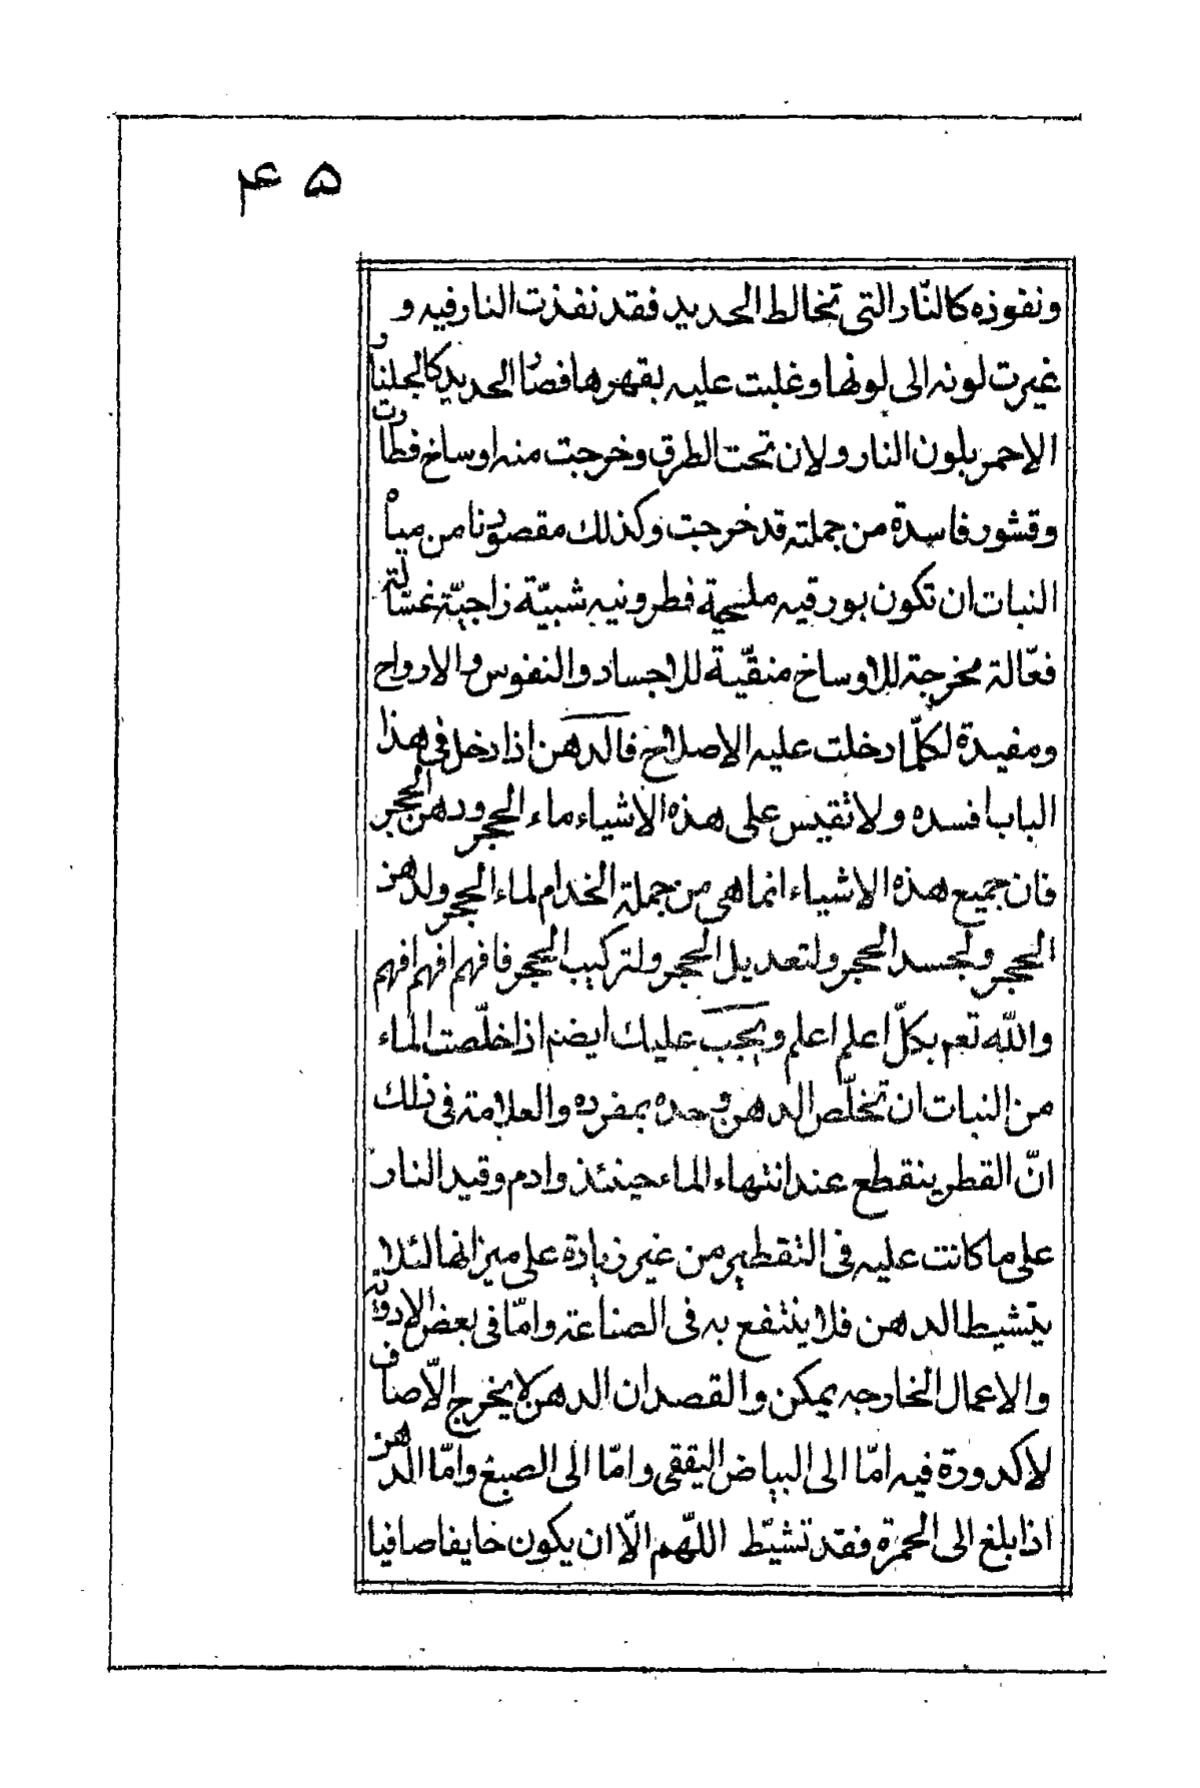 ۴۵
ونفوذه كالنّار التى تخالط الحديد فقد نفذت النار فيه و
غيرت لونه الى لونها وغلبت عليه بقهرها فصار الحديد كالجلنار
الاحمر بلون النار ولان تحت الطرق وخرجت منه اوساخ فطارت
وقشور فاسدة من جملته قد خرجت وكذلك مقصودنا من مياه
النبات ان تكون بورقيه ملحية فطرونيه شبيّة زاجيّة غسّالة
فعّالة مخرجة للاوساخ منقّية للاجساد والنفوس والارواح
ومفيدة لكلّما دخلت عليه الاصلاح فالدهن اذا دخل فى هذا
الباب افسده ولا تقيس على هذه الاشياء ماء الحجر ودهن الحجر
فان جميع هذه الاشياء انما هى من جملة الخدام لماء الحجر ولدهن
الحجر ولجسد الحجر ولتعديل الحجر ولتركيب الحجر فافهم افهم افهم
والله تعم بكلّ اعلم اعلم ويجب عليك ايضم اذا خلّصت الماء
من النبات ان تخلّص الدهن وحده بمفرده والعلامة فى ذلك
انّ القطر ينقطع عند انتهاء الماء حينئذ وادم وقيد النار
على ما كانت عليه فى التقطير من غير زيادة على ميزانها لئلا
يتشيط الدهن فلا ينتفع به فى الصناعة وامّا فى بعض الادوية
والاعمال الخارجه يمكن والقصد ان الدهن لا يخرج الّا صاف
لا كدورة فيه امّا الى البياض اليققى وامّا الى الصبغ وامّا الدهن
اذا بلغ الى الحمرة فقد تشيّط اللهّم الّا ان يكون خايفا صافيا